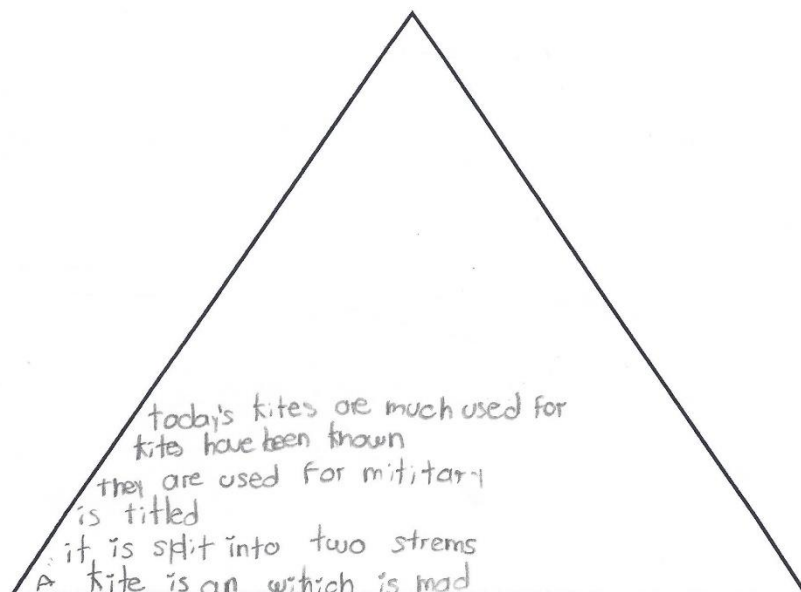 today's kites are much used for
kites have been known
they are used for mititary
is titled
it is split into two strems
A kite is an wihich is mad